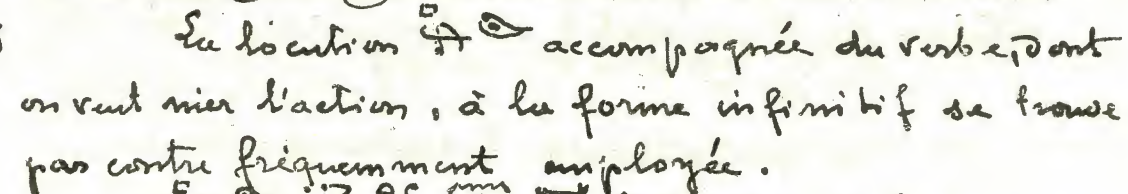 La locution 𓂜 𓁹 accompagnée du verbe, dont
on veut nier l'action, à la forme infinitif se trouve
par contre fréquemment employée.